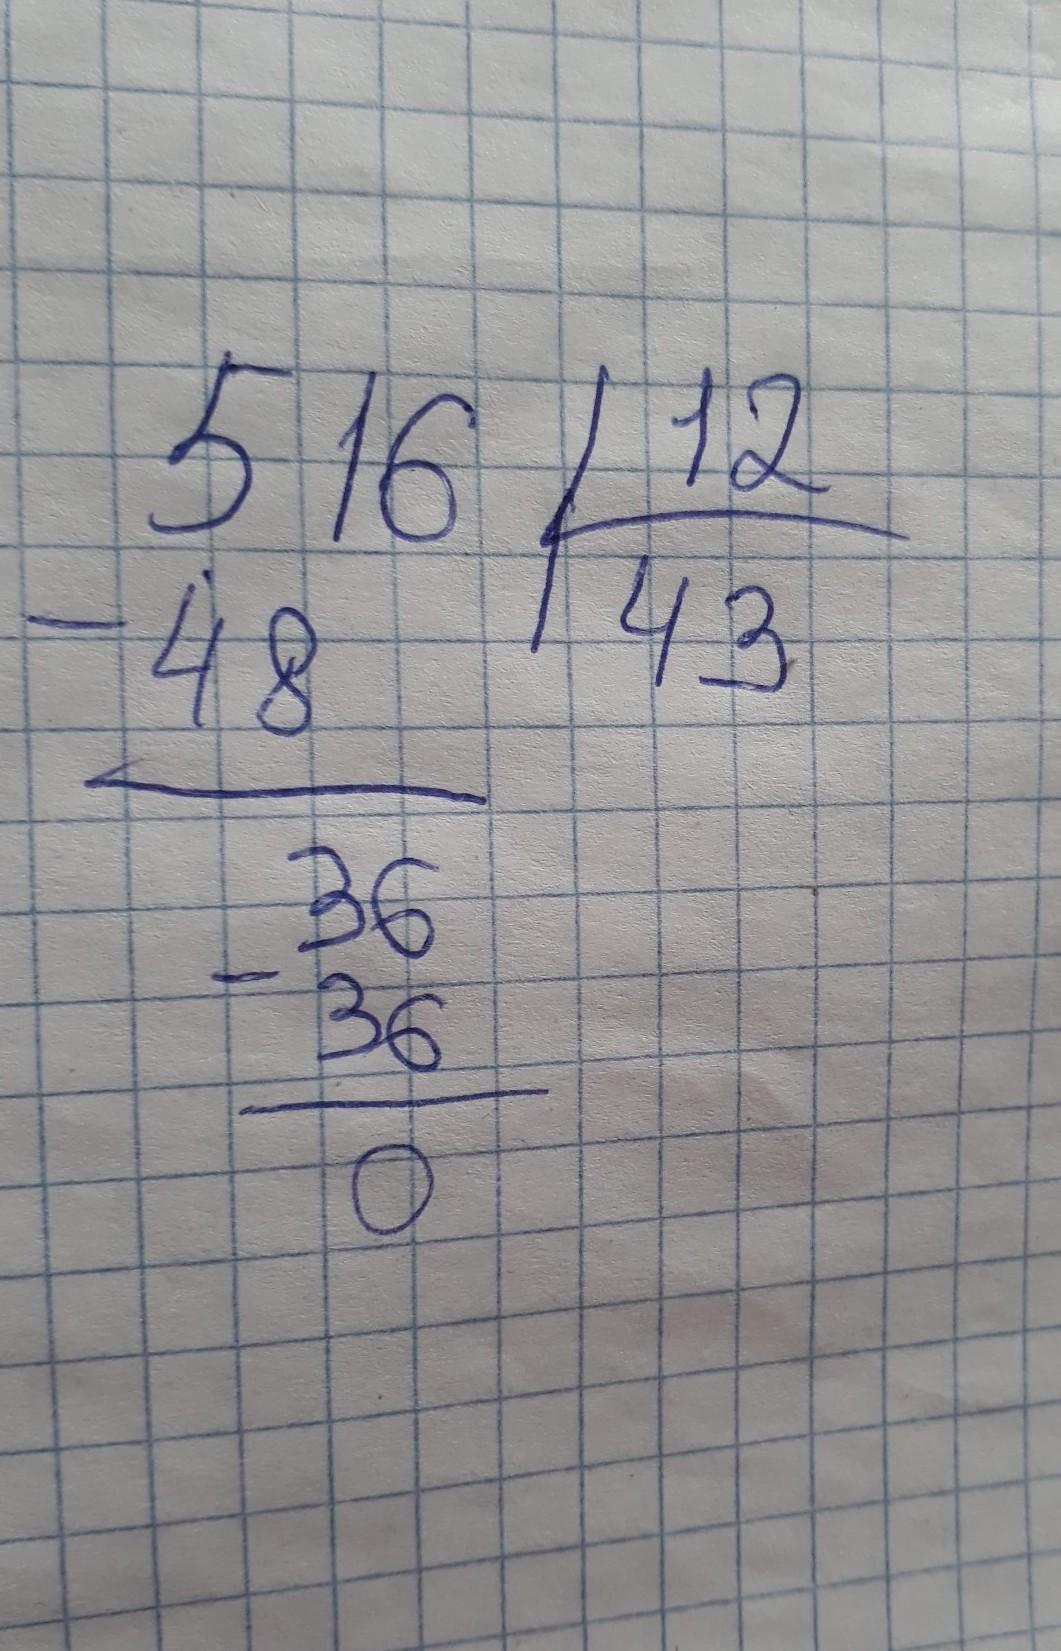 516 12
- 48 43
36
- 36
0